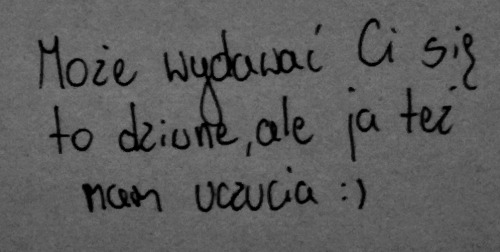 Może wydawać Ci się
to dziwne, ale ja też
mam uczucia :)